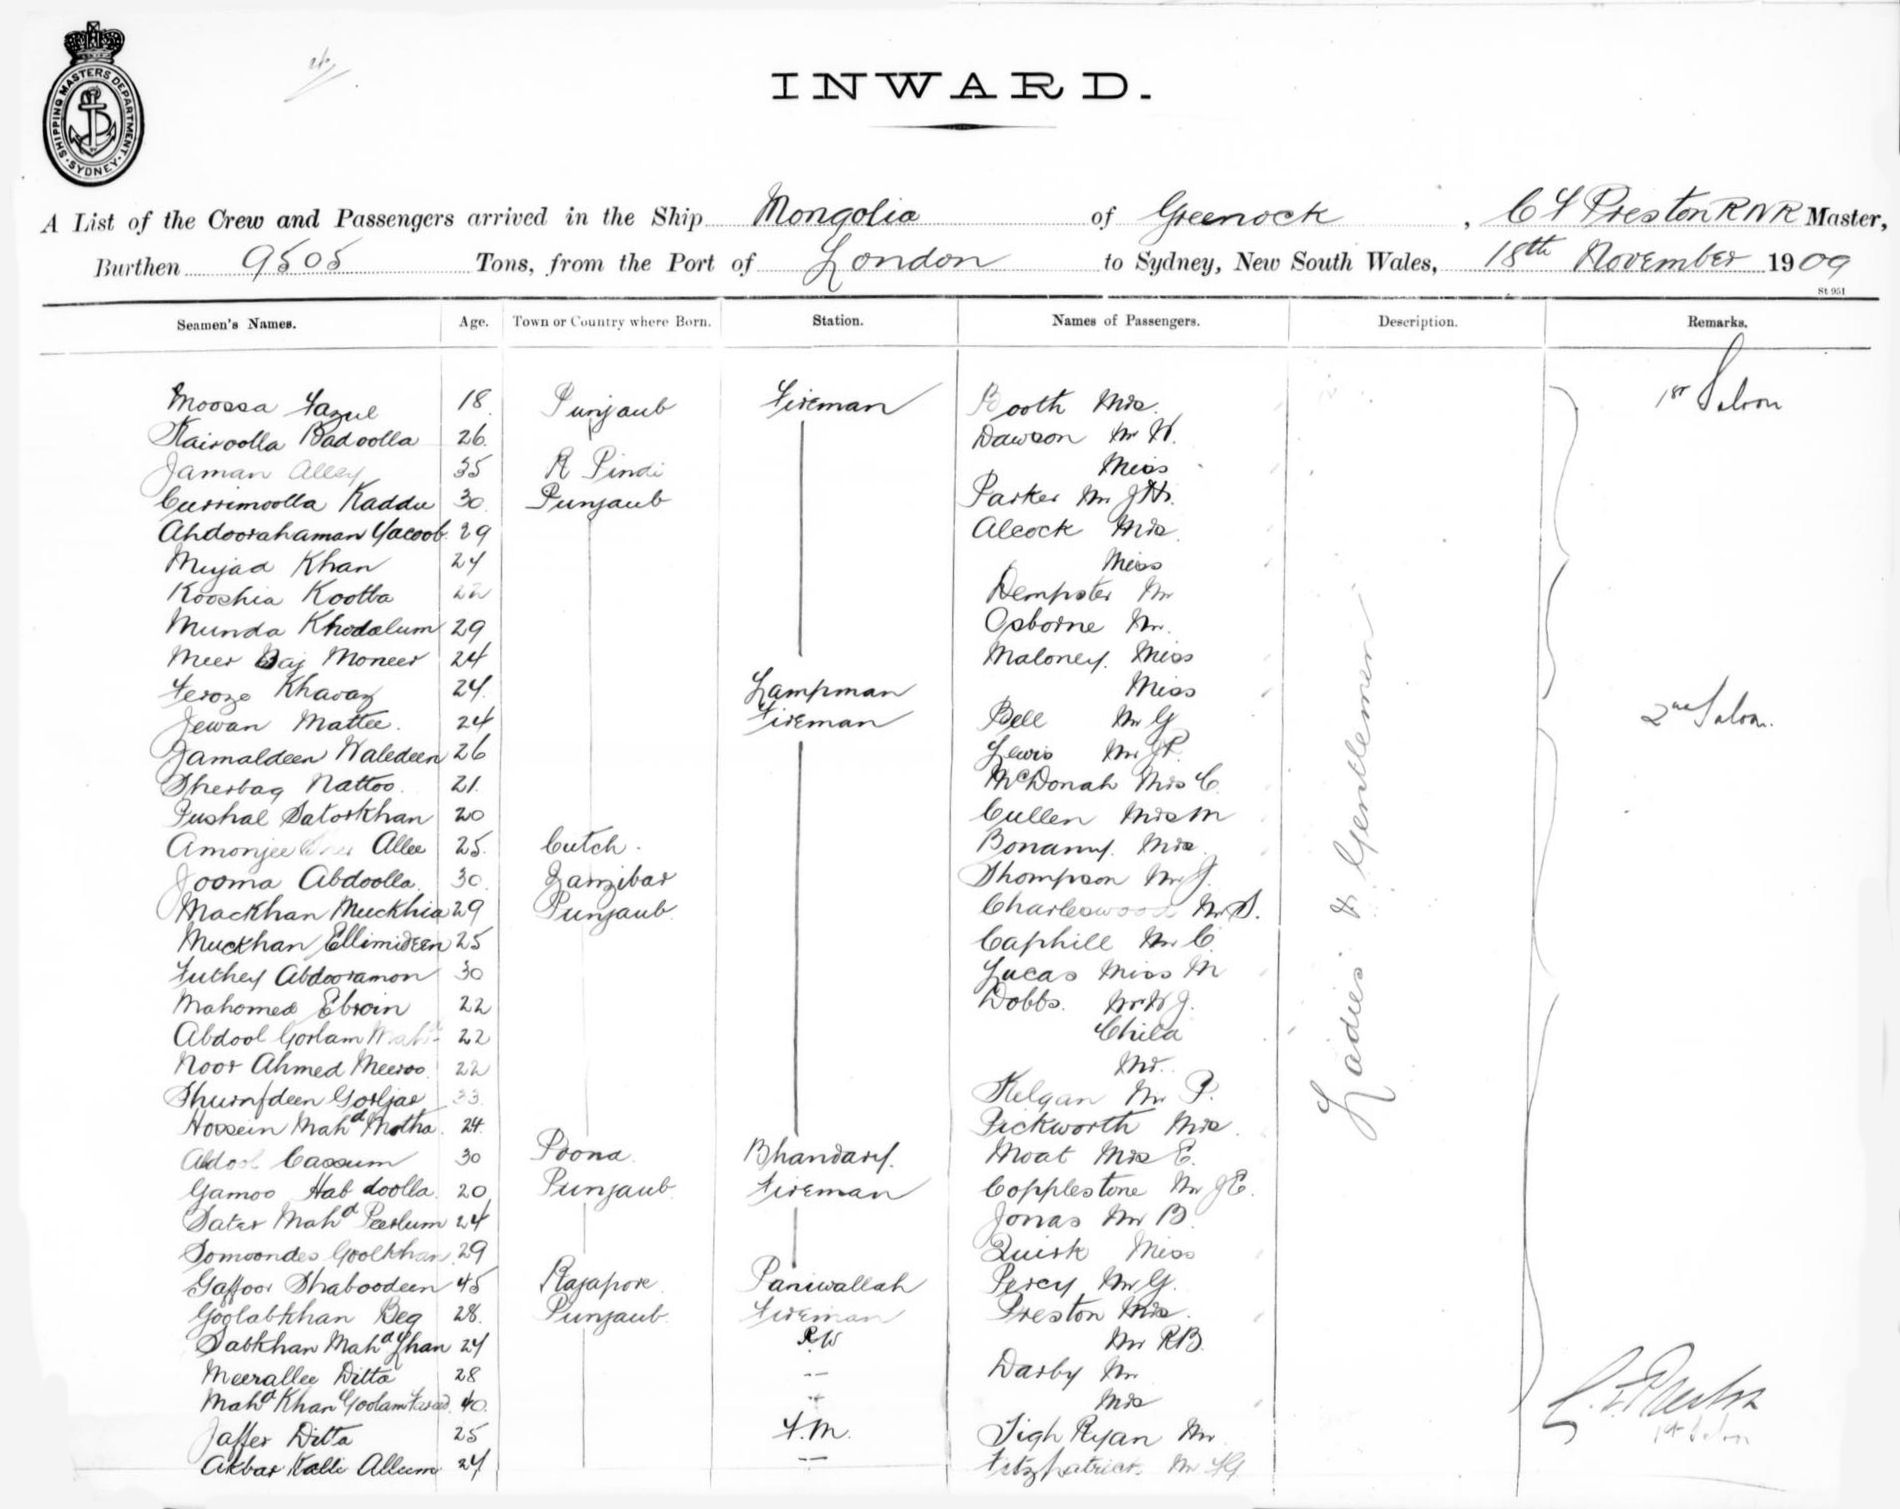 SHIPPING MASTERS DEPARTMENT · SYDNEY ·
INWARD.
A List of the Crew and Passengers arrived in the Ship Mongolia of Greenock, C L Preston RNR Master,
Burthen 9505 Tons, from the Port of London to Sydney, New South Wales, 18th November 1909
St 951
Seamen's Names. Age. Town or Country where Born. Station. Names of Passengers. Description. Remarks.
Moossa Fazul 18 Punjaub Fireman Booth Mrs. 1st Saloon
Kairoolla Badoolla 26 Dawson Mr W.
Jaman Alley 35 R Pindi Miss
Currimoolla Kaddu 30 Punjaub Parker Mr J H.
Abdoorahaman Yacoob 29 Alcock Mrs
Mujad Khan 24 Miss
Kooshia Kootba 22 Dempster Mr
Munda Khodalum 29 Osborne Mr.
Meer Baj Moneer 24 Maloney. Miss
Feroze Khavaz 24 Lampman Miss
Jewan Mattee. 24 Fireman Bell Mr G 2nd Saloon.
Jamaldeen Waledeen 26 Lewis Mr J P.
Sherbag Nattoo. 21. McDonah Mrs C.
Fushal Satorkhan 20 Cullen Mrs M
Amonjee Allee 25. Cutch. Bonamy. Mrs
Jooma Abdoolla. 30. Zanzibar Thompson Mr J.
Mackhan Muckhia 29 Punjaub Charleswood Mr S.
Muckhan Ellimideen 25 Caphill Mr C.
Futhey Abdooramon 30 Lucas Miss M
Mahomed Ebroin 22 Dobbs. Mr W J.
Abdool Gorlam Mahd 22 Child
Noor Ahmed Meeroo. 22 Mr.
Shurnfdeen Gorljae 33. Kelgan Mr P.
Hossein Mahd Motha. 24. Pickworth Mrs.
Abdool Cassum 30 Poona. Bhandary. Moat Mrs E.
Gamoo Habdoolla. 20 Punjaub. Fireman Copplestone Mr J E.
Sater Mahd Peerlum 24 Jonas Mr B.
Somoondes Goolkhan. 29 Quirk Miss
Gaffoor Shaboodeen 45 Rajapore. Paniwallah Percy Mr G.
Goolabkhan Beg 28. Punjaub. Fireman Preston Mrs.
Sabkhan Mahd Khan 24 P.W Mr R B.
Meerallee Ditta 28 -- Darby Mr
Mahd Khan Goolam Fareed. 40. Mrs
Jaffer Ditta 25 F.M. Tigh Ryan Mr
Akbar Kalli Allum 24 -- Fitzpatrick. Mr
Ladies & Gentlemen
C. L. Preston
1st Saloon